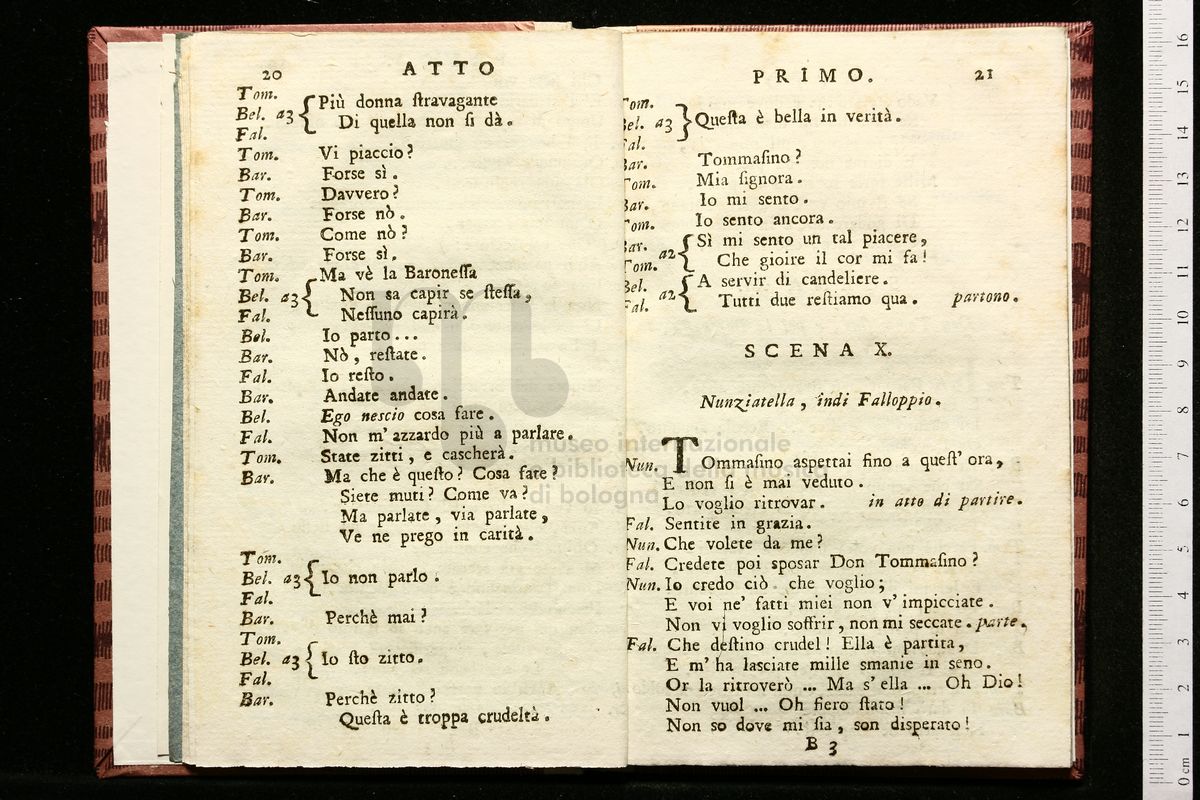 20 ATTO
Tom.
Bel. a3 { Più donna stravagante
Fal. Di quella non si dà.
Tom. Vi piaccio?
Bar. Forse sì.
Tom. Davvero?
Bar. Forse nò.
Tom. Come nò?
Bar. Forse sì.
Tom. Ma vè la Baronessa
Bel. a3 { Non sa capir se stessa,
Fal. Nessuno capirà.
Bel. Io parto...
Bar. Nò, restate.
Fal. Io resto.
Bar. Andate andate.
Bel. Ego nescio cosa fare.
Fal. Non m'azzardo più a parlare.
Tom. State zitti, e cascherà.
Bar. Ma che è questo? Cosa fate?
Siete muti? Come va?
Ma parlate, via parlate,
Ve ne prego in carità.
Tom.
Bel. a3 { Io non parlo.
Fal.
Bar. Perchè mai?
Tom.
Bel. a3 { Io sto zitto.
Fal.
Bar. Perchè zitto?
Questa è troppa crudeltà.
PRIMO. 21
Tom.
Bel. a3 } Questa è bella in verità.
Fal.
Bar. Tommasino?
Tom. Mia signora.
Bar. Io mi sento.
Tom. Io sento ancora.
Bar. a2 { Sì mi sento un tal piacere,
Tom. Che gioire il cor mi fa!
Bel. a2 { A servir di candeliere.
Fal. Tutti due restiamo qua. partono.
SCENA X.
Nunziatella, indi Falloppio.
Nun. TOmmasino aspettai fino a quest'ora,
E non si è mai veduto.
Lo voglio ritrovar. in atto di partire.
Fal. Sentite in grazia.
Nun. Che volete da me?
Fal. Credete poi sposar Don Tommasino?
Nun. Io credo ciò che voglio;
E voi ne' fatti miei non v'impicciate.
Non vi voglio soffrir, non mi seccate. parte.
Fal. Che destino crudel! Ella è partita,
E m'ha lasciate mille smanie in seno.
Or la ritroverò ... Ma s'ella ... Oh Dio!
Non vuol ... Oh fiero stato!
Non so dove mi sia, son disperato!
B 3
museo internazionale
e biblioteca della musica
di bologna
0 cm 1 2 3 4 5 6 7 8 9 10 11 12 13 14 15 16